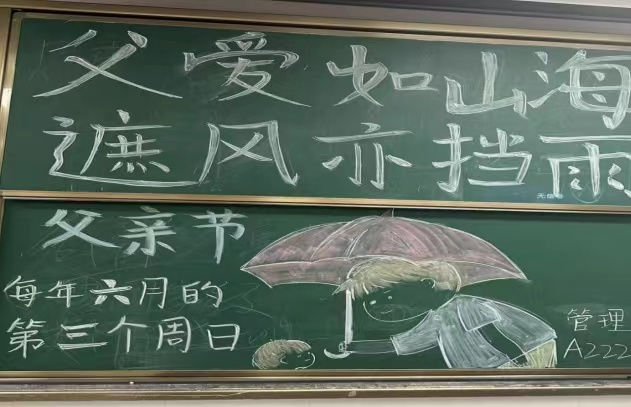 父爱如山海
遮风亦挡雨
父亲节
每年六月的
第三个周日
管理
A222